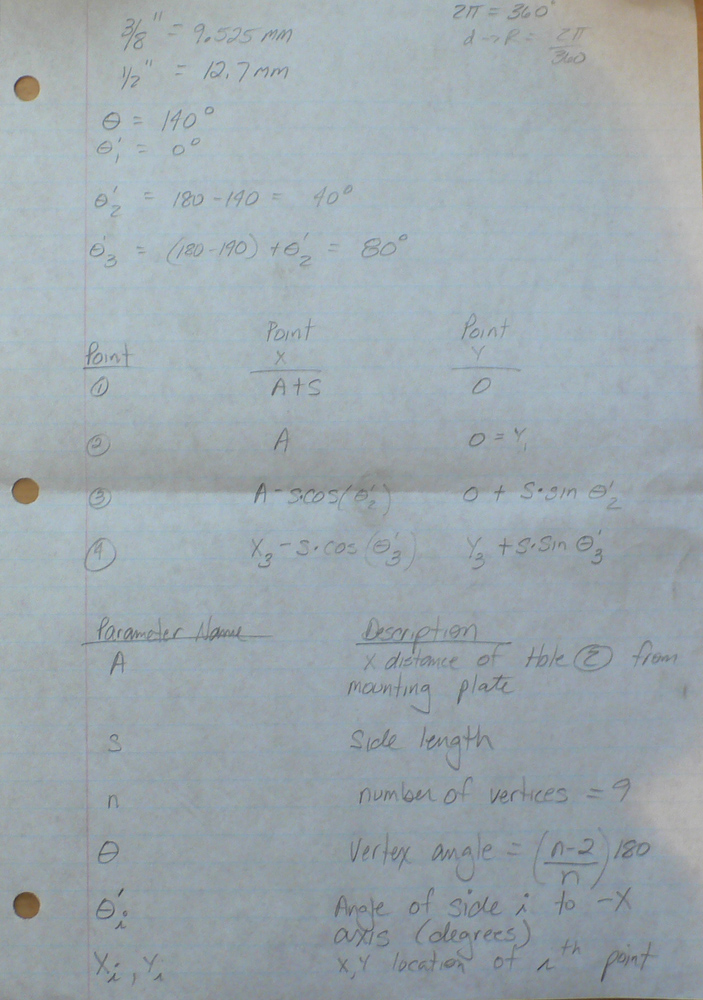 3/8" = 9.525 mm
2π = 360°
d → R = 2π/360
1/2" = 12.7 mm
θ = 140°
θ'₁ = 0°
θ'₂ = 180 - 140 = 40°
θ'₃ = (180 - 140) + θ'₂ = 80°
Point Point X Point Y
① A+S 0
② A 0 = Y₁
③ A - S·cos(θ'₂) 0 + S·sin θ'₂
④ X₃ - S·cos(θ'₃) Y₃ + S·sin θ'₃
Parameter Name Description
A X distance of Hole ② from
mounting plate
S Side length
n number of vertices = 9
θ Vertex angle = ((n-2)/n) 180
θ'ᵢ Angle of side i to -X
axis (degrees)
Xᵢ, Yᵢ X,Y location of iᵗʰ point